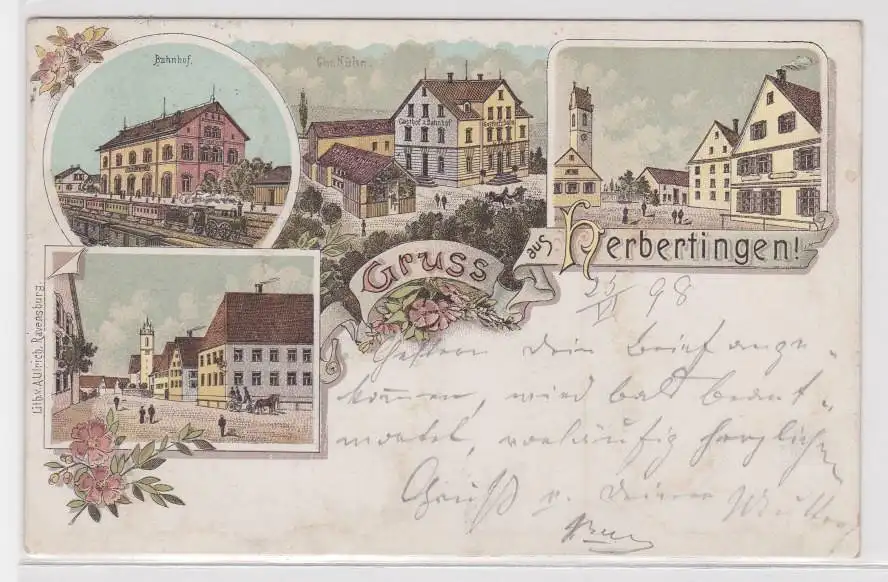 Bahnhof.
Chr. Kühn.
Gasthof z. Bahnhof
Gruss
aus Herbertingen!
Lith. v. A. Ulrich, Ravensburg.
25/VI 98
Gestern Dein Brief ange-
kommen, wird bald beant-
wortet, vorläufig herzlichen
Gruß v. Deiner Mutter